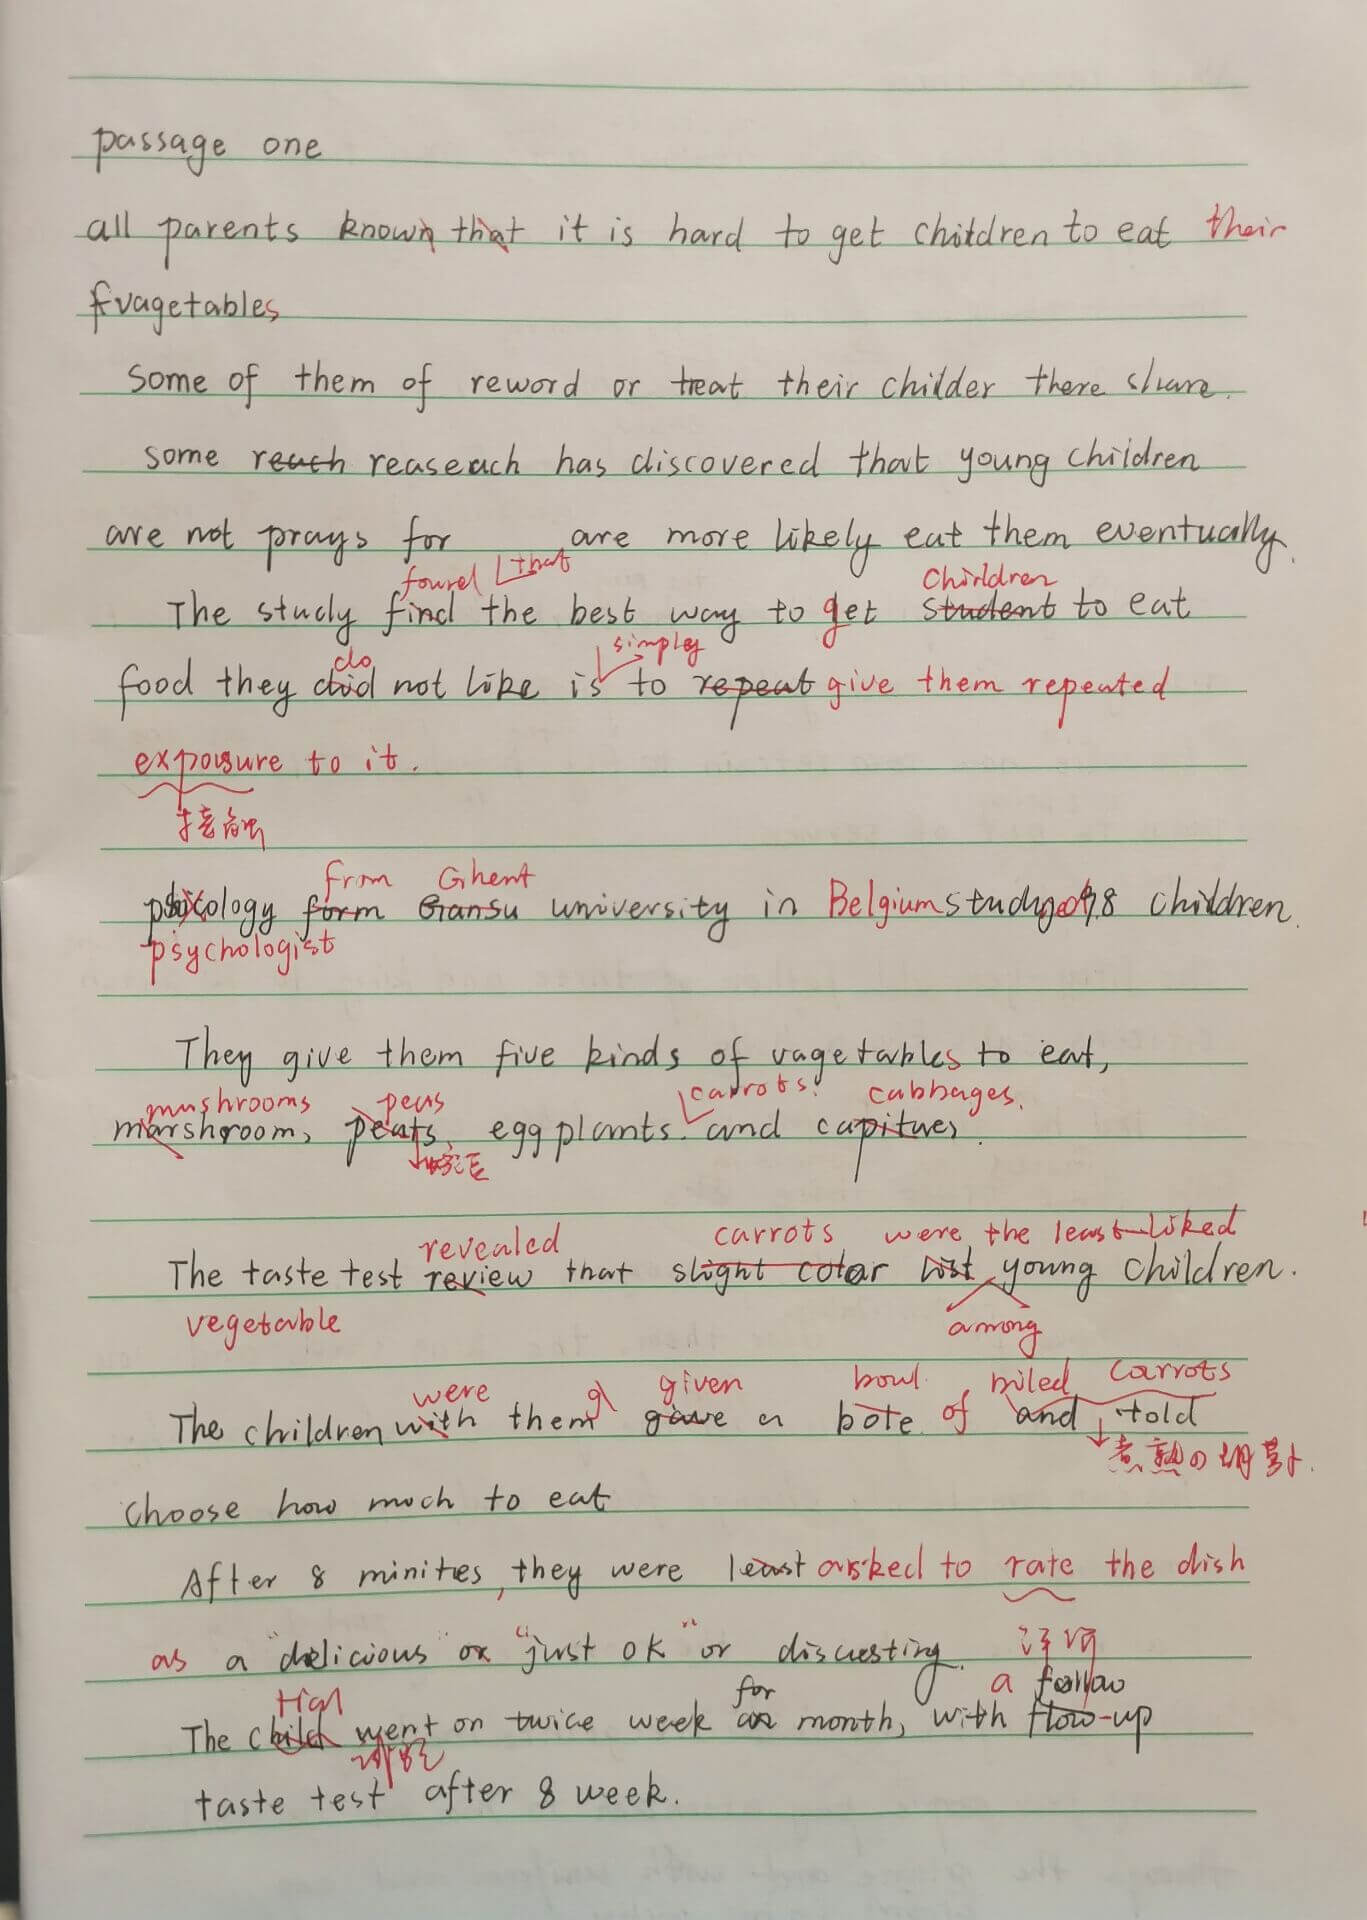 passage one
all parents known that it is hard to get children to eat their
vagetables
some of them of reword or treat their childer there share.
some reach reaseach has discovered that young children
are not prays for are more likely eat them eventually.
found that children
The study find the best way to get student to eat
do simply
food they did not like is to repeat give them repeated
exposure to it.
接触
from Ghent
form Gansu university in Belgium study of 98 children.
psychologist
They give them five kinds of vagetables to eat,
mushrooms peas carrots. cabbages.
marshroom, peats, eggplants and
豌豆
revealed carrots were the least-liked
The taste test review that slight color list young children.
vegetable among
were given bowl boiled carrots
The children with them gave a bote of and told
煮熟の胡萝卜.
choose how much to eat
After 8 minites, they were least asked to rate the dish
as a "delicious" or "just ok" or discusting.
评河
Trial for a follow
The child went on twice week an month, with flow-up
taste test after 8 week.